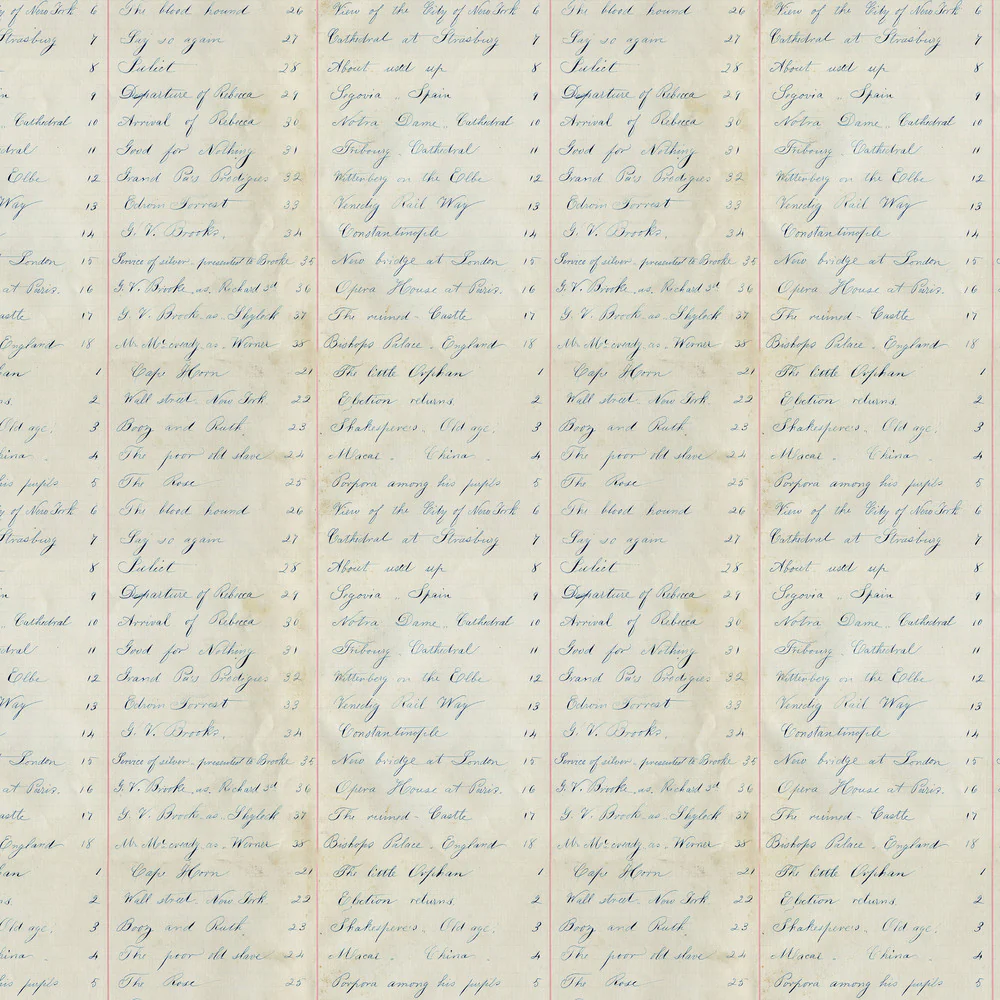 y of the City of New York 6 The blood hound 26 View of the City of New York 6 The blood hound 26 View of the City of New York 6
Strasburg 7 Say so again 27 Cathedral at Strasburg 7 Say so again 27 Cathedral at Strasburg 7
8 Juliet 28 About used up 8 Juliet 28 About used up 8
n 9 Departure of Rebecca 29 Segovia .. Spain 9 Departure of Rebecca 29 Segovia .. Spain 9
.. Cathedral 10 Arrival of Rebecca 30 Notra Dame .. Cathedral 10 Arrival of Rebecca 30 Notra Dame .. Cathedral 10
dral 11 Good for Nothing 31 Fribourg . Cathedral 11 Good for Nothing 31 Fribourg . Cathedral 11
Elbe 12 Grand Pa's Prodigies 32 Wittenberg on the Elbe 12 Grand Pa's Prodigies 32 Wittenberg on the Elbe 12
Way 13 Edwin Forrest 33 Venedig Rail Way 13 Edwin Forrest 33 Venedig Rail Way 13
14 G. V. Brooks. 34 Constantinople 14 G. V. Brooks. 34 Constantinople 14
t London 15 Service of silver - presented to Brooke 35 New bridge at London 15 Service of silver - presented to Brooke 35 New bridge at London 15
at Paris. 16 G. V. Brooke . as. Richard 3rd 36 Opera House at Paris. 16 G. V. Brooke . as. Richard 3rd 36 Opera House at Paris. 16
astle 17 G. V. Brooke as . Shylock 37 The ruined - Castle 17 G. V. Brooke as . Shylock 37 The ruined - Castle 17
England 18 Mr. McCready as . Werner 38 Bishops Palace . England 18 Mr. McCready as . Werner 38 Bishops Palace . England 18
han 1 Cape Horn 21 The little Orphan 1 Cape Horn 21 The little Orphan 1
ns. 2 Wall street . New York 22 Election returns. 2 Wall street . New York 22 Election returns. 2
Old age. 3 Booz and Ruth. 23 Shakesperes . Old age. 3 Booz and Ruth. 23 Shakesperes . Old age. 3
hina . 4 The poor old slave 24 Macas . China . 4 The poor old slave 24 Macas . China . 4
his pupils 5 The Rose 25 Porpora among his pupils 5 The Rose 25 Porpora among his pupils 5
y of the City of New York 6 The blood hound 26 View of the City of New York 6 The blood hound 26 View of the City of New York 6
Strasburg 7 Say so again 27 Cathedral at Strasburg 7 Say so again 27 Cathedral at Strasburg 7
8 Juliet 28 About used up 8 Juliet 28 About used up 8
n 9 Departure of Rebecca 29 Segovia .. Spain 9 Departure of Rebecca 29 Segovia .. Spain 9
.. Cathedral 10 Arrival of Rebecca 30 Notra Dame .. Cathedral 10 Arrival of Rebecca 30 Notra Dame .. Cathedral 10
dral 11 Good for Nothing 31 Fribourg . Cathedral 11 Good for Nothing 31 Fribourg . Cathedral 11
Elbe 12 Grand Pa's Prodigies 32 Wittenberg on the Elbe 12 Grand Pa's Prodigies 32 Wittenberg on the Elbe 12
Way 13 Edwin Forrest 33 Venedig Rail Way 13 Edwin Forrest 33 Venedig Rail Way 13
14 G. V. Brooks. 34 Constantinople 14 G. V. Brooks. 34 Constantinople 14
t London 15 Service of silver - presented to Brooke 35 New bridge at London 15 Service of silver - presented to Brooke 35 New bridge at London 15
at Paris. 16 G. V. Brooke . as. Richard 3rd 36 Opera House at Paris. 16 G. V. Brooke . as. Richard 3rd 36 Opera House at Paris. 16
astle 17 G. V. Brooke as . Shylock 37 The ruined - Castle 17 G. V. Brooke as . Shylock 37 The ruined - Castle 17
England 18 Mr. McCready as . Werner 38 Bishops Palace . England 18 Mr. McCready as . Werner 38 Bishops Palace . England 18
han 1 Cape Horn 21 The little Orphan 1 Cape Horn 21 The little Orphan 1
ns. 2 Wall street . New York 22 Election returns. 2 Wall street . New York 22 Election returns. 2
Old age. 3 Booz and Ruth. 23 Shakesperes . Old age. 3 Booz and Ruth. 23 Shakesperes . Old age. 3
hina . 4 The poor old slave 24 Macas . China . 4 The poor old slave 24 Macas . China . 4
his pupils 5 The Rose 25 Porpora among his pupils 5 The Rose 25 Porpora among his pupils 5